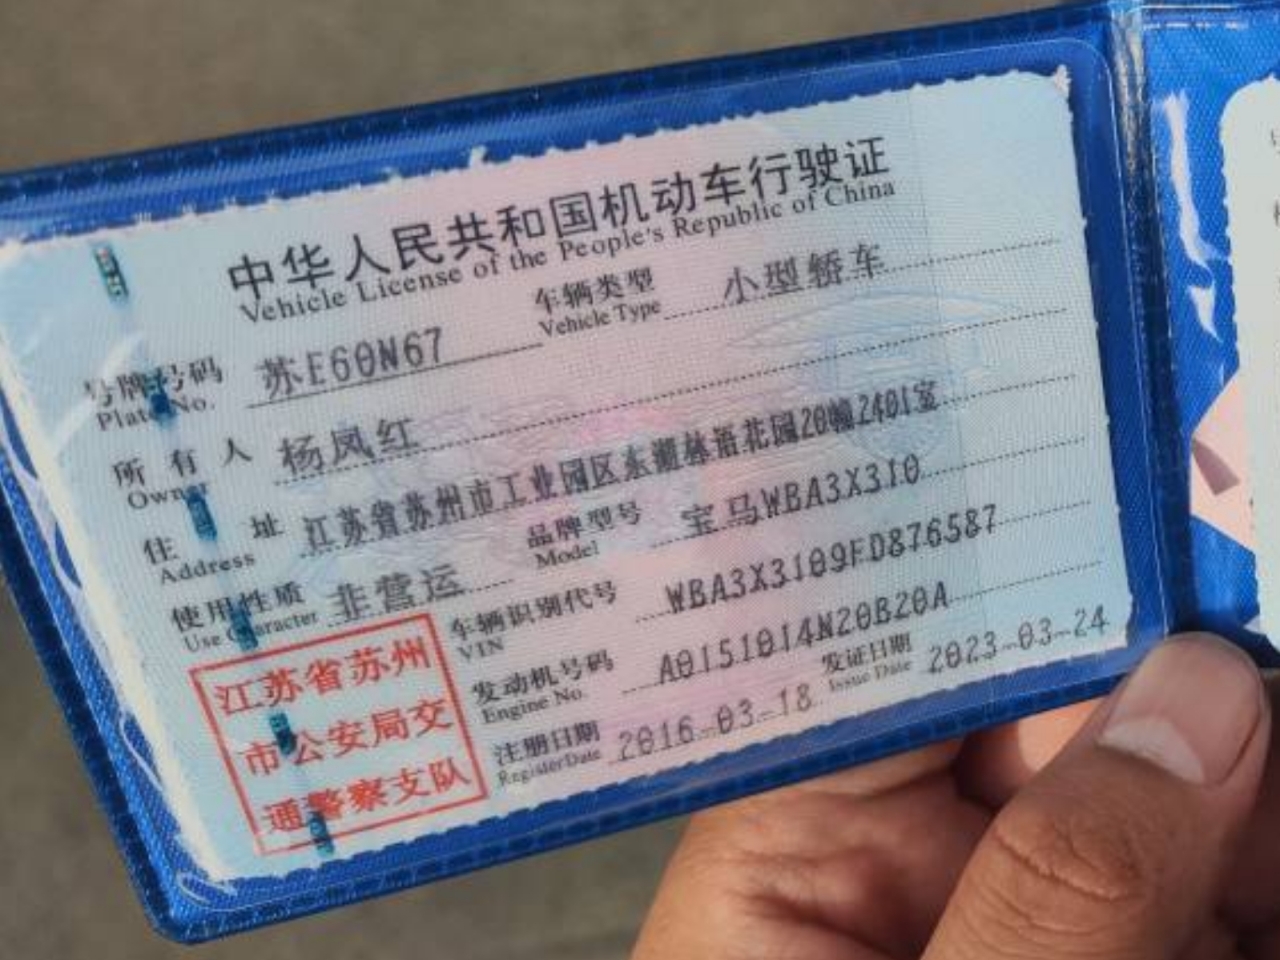 中华人民共和国机动车行驶证
Vehicle License of the People's Republic of China
号牌号码 苏E60N67 车辆类型 小型轿车
Plate No. Vehicle Type
所有人 杨凤红
Owner
住址 江苏省苏州市工业园区东湖林语花园20幢2401室
Address
使用性质 非营运 品牌型号 宝马WBA3X310
Use Character Model
车辆识别代号 WBA3X3109FD876587
VIN
发动机号码 A0151014N20B20A
Engine No.
注册日期 2016-03-18 发证日期 2023-03-24
Register Date Issue Date
江苏省苏州
市公安局交
通警察支队